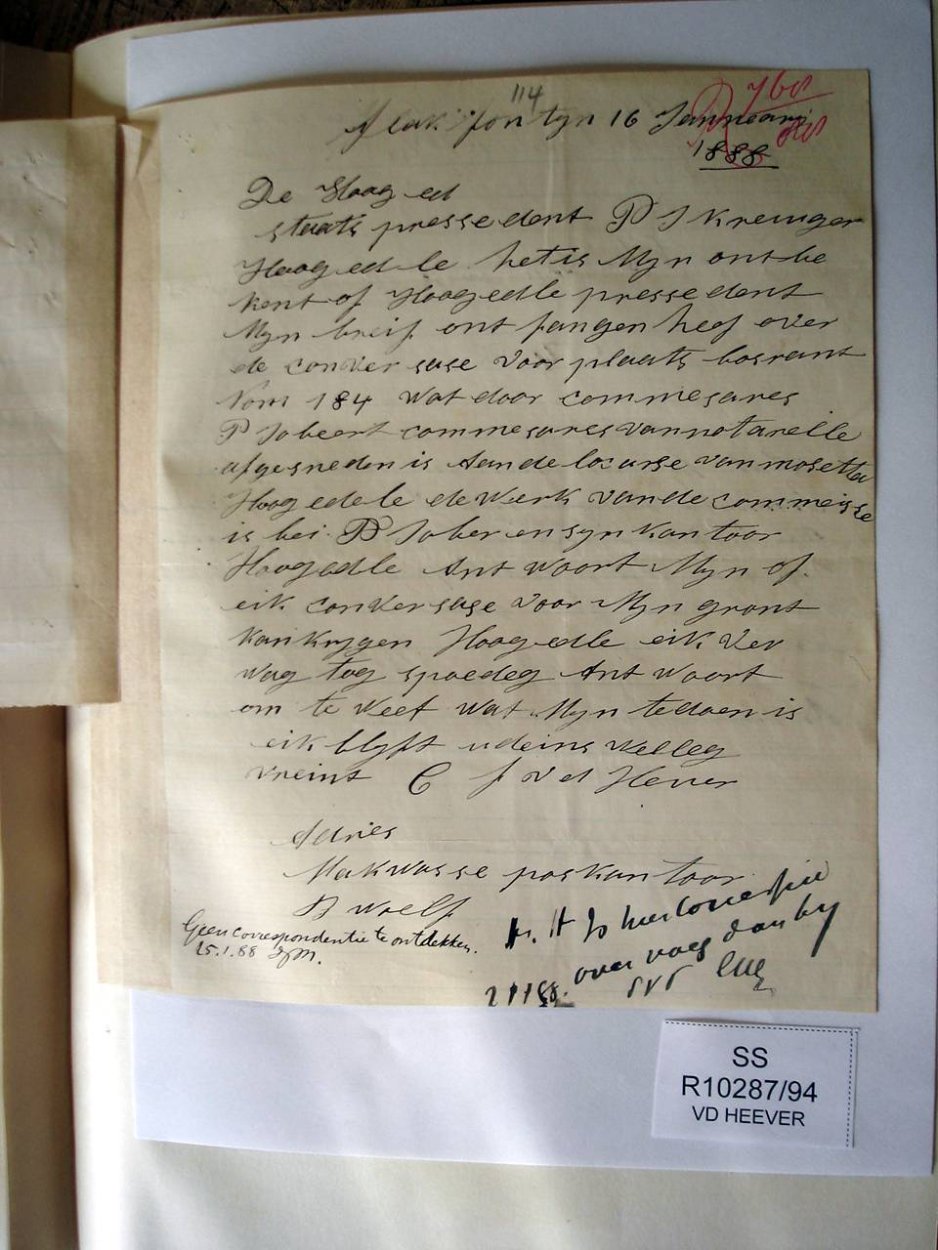 114
Vlak fontyn 16 Jannoari
1888
De Hoog ed
staats presse dent P J Kreuger
Hoog ed le het is Myn ont be
kent of Hoogedle presse dent
Myn breif ont fangen heef over
de conver sase voor plaats bosrant
Nom 184 wat door commesares
P Jobeert commesares van notarelle
afgesneden is aan de locasse van mosetta
Hoog edele de werk van de commeisse
is bei P Jober en syn kantoor
Hoogedle Ant woort Myn of
eik conversase voor Myn gront
kan krygen Hoog edle eik ver
wag tog spoedeg Ant woort
om te weet wat Myn te doen is
eik blyft u deins welleg
vreint C J v d Hever
Adries
Makwasse poskantoor
D Woelf
Geen correspondentie te ontdekken.
25.1.88
hier
over
21/1 88.
SS
R10287/94
VD HEEVER